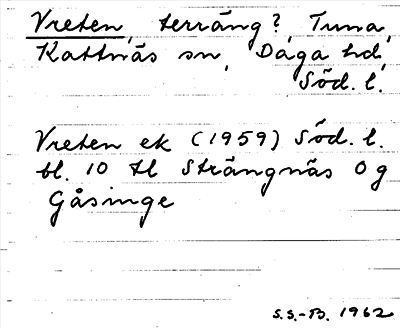 Vreten, terräng?, Tuna,
Kattnäs sn, Daga hd,
Söd. l.
Vreten ek (1959) Söd. l.
bl. 10 tl Strängnäs Og
Gåsinge
S.S.-B. 1962